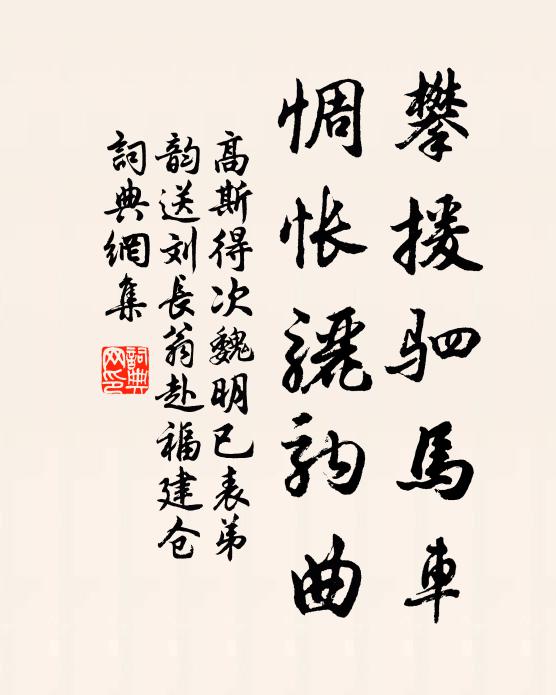 攀援驷馬車
惆怅骊驹曲
高斯得次魏明已表弟
韵送刘長翁赴福建仓
詞典網集
詞典
网印